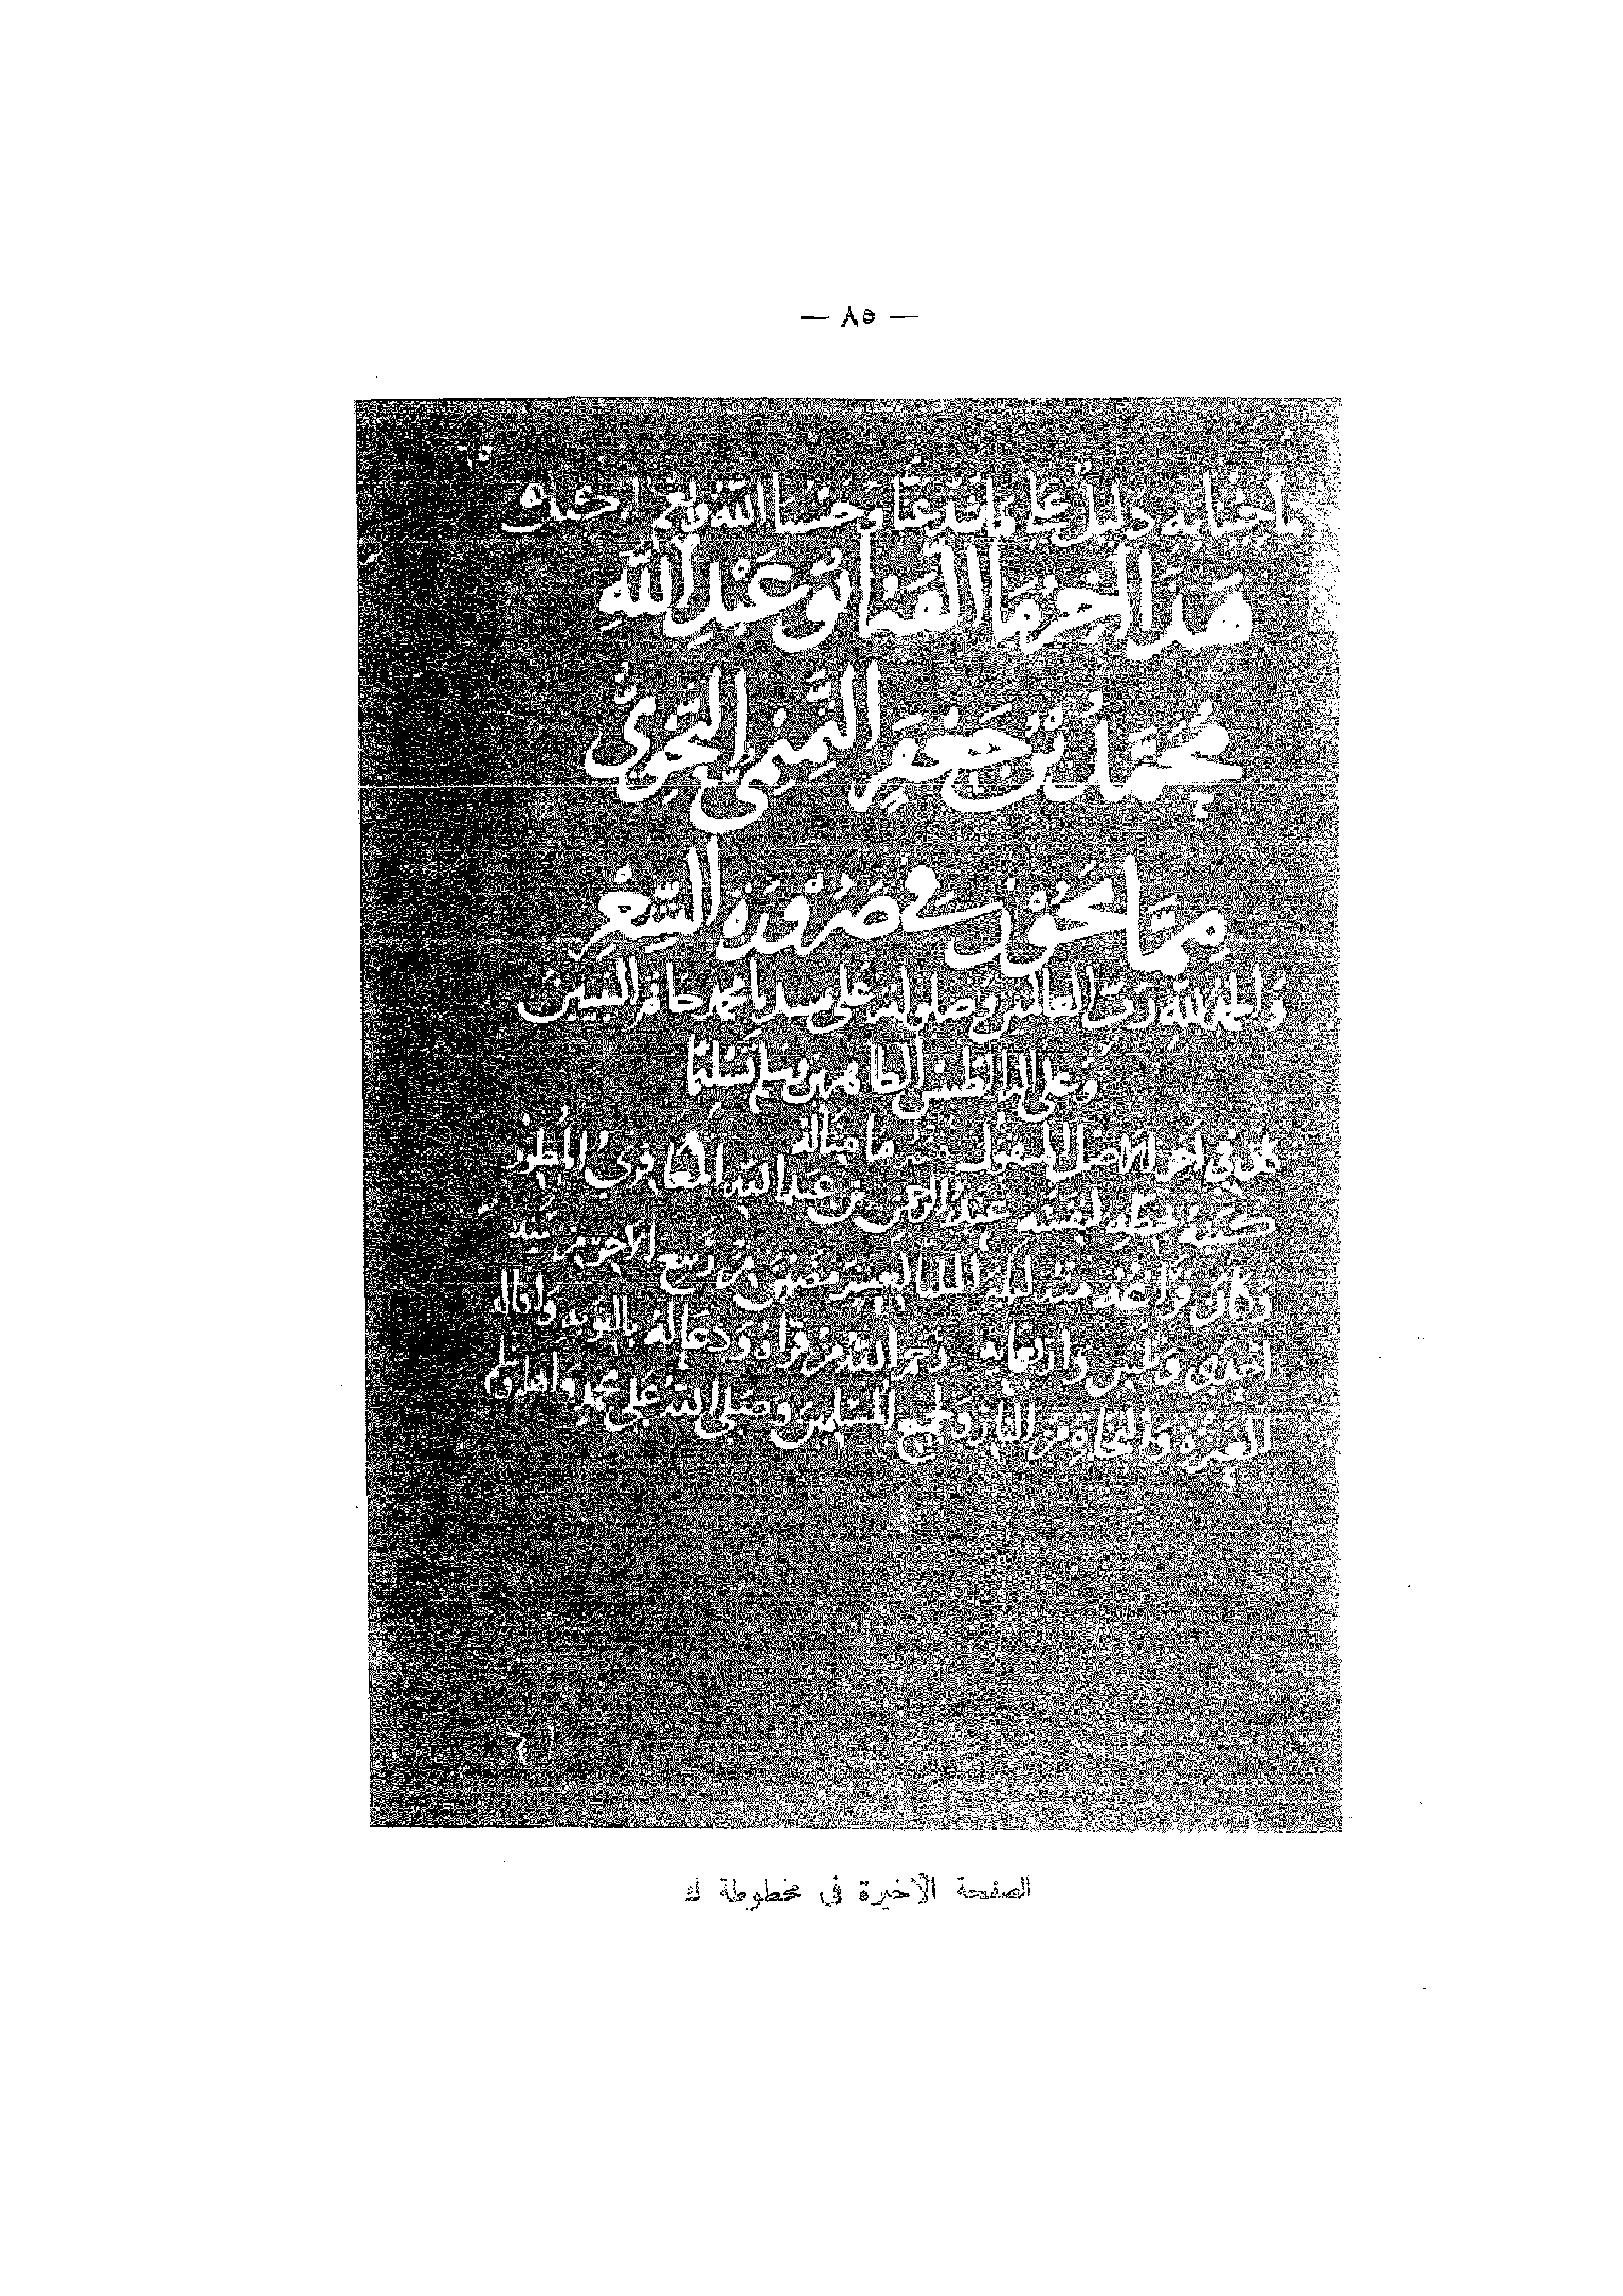 — ٨٥ —
٦٥
ما جئنا به دليل على ما شذ عنا وحسبنا الله ونعم
هَذَا آخِرُ مَا أَلَّفَهُ أَبُو عَبْدِ اللَّهِ
مُحَمَّدُ بْنُ جَعْفَرٍ التَّمِيمِيُّ النَّحْوِيُّ
مِمَّا يَجُوزُ فِي ضَرُورَةِ الشِّعْرِ
وَالحمد لله رَبِّ العالمين وَصلواته عَلى سيدنا محمد خاتم النبيينَ
وَعلى اله الطيبين الطاهرين وسلم تَسْلِيمًا
كان في آخر الأصل المنقول منه ما مثاله
كتبه بخطه لنفسه عبد الرحمن بن عبد الله المعافري
وكان فراغه منه ليلة الثلثا لعشر مضين من ربيع الآخر من سنة
احدى وأربعمايه رحم الله من قراه ودعا له بالتوبة واقاله
العثرة والنجاة من النار ولجميع المسلمين وصلى الله على محمد وأهله وسلم
٦١
الصفحة الأخيرة فى مخطوطة ك